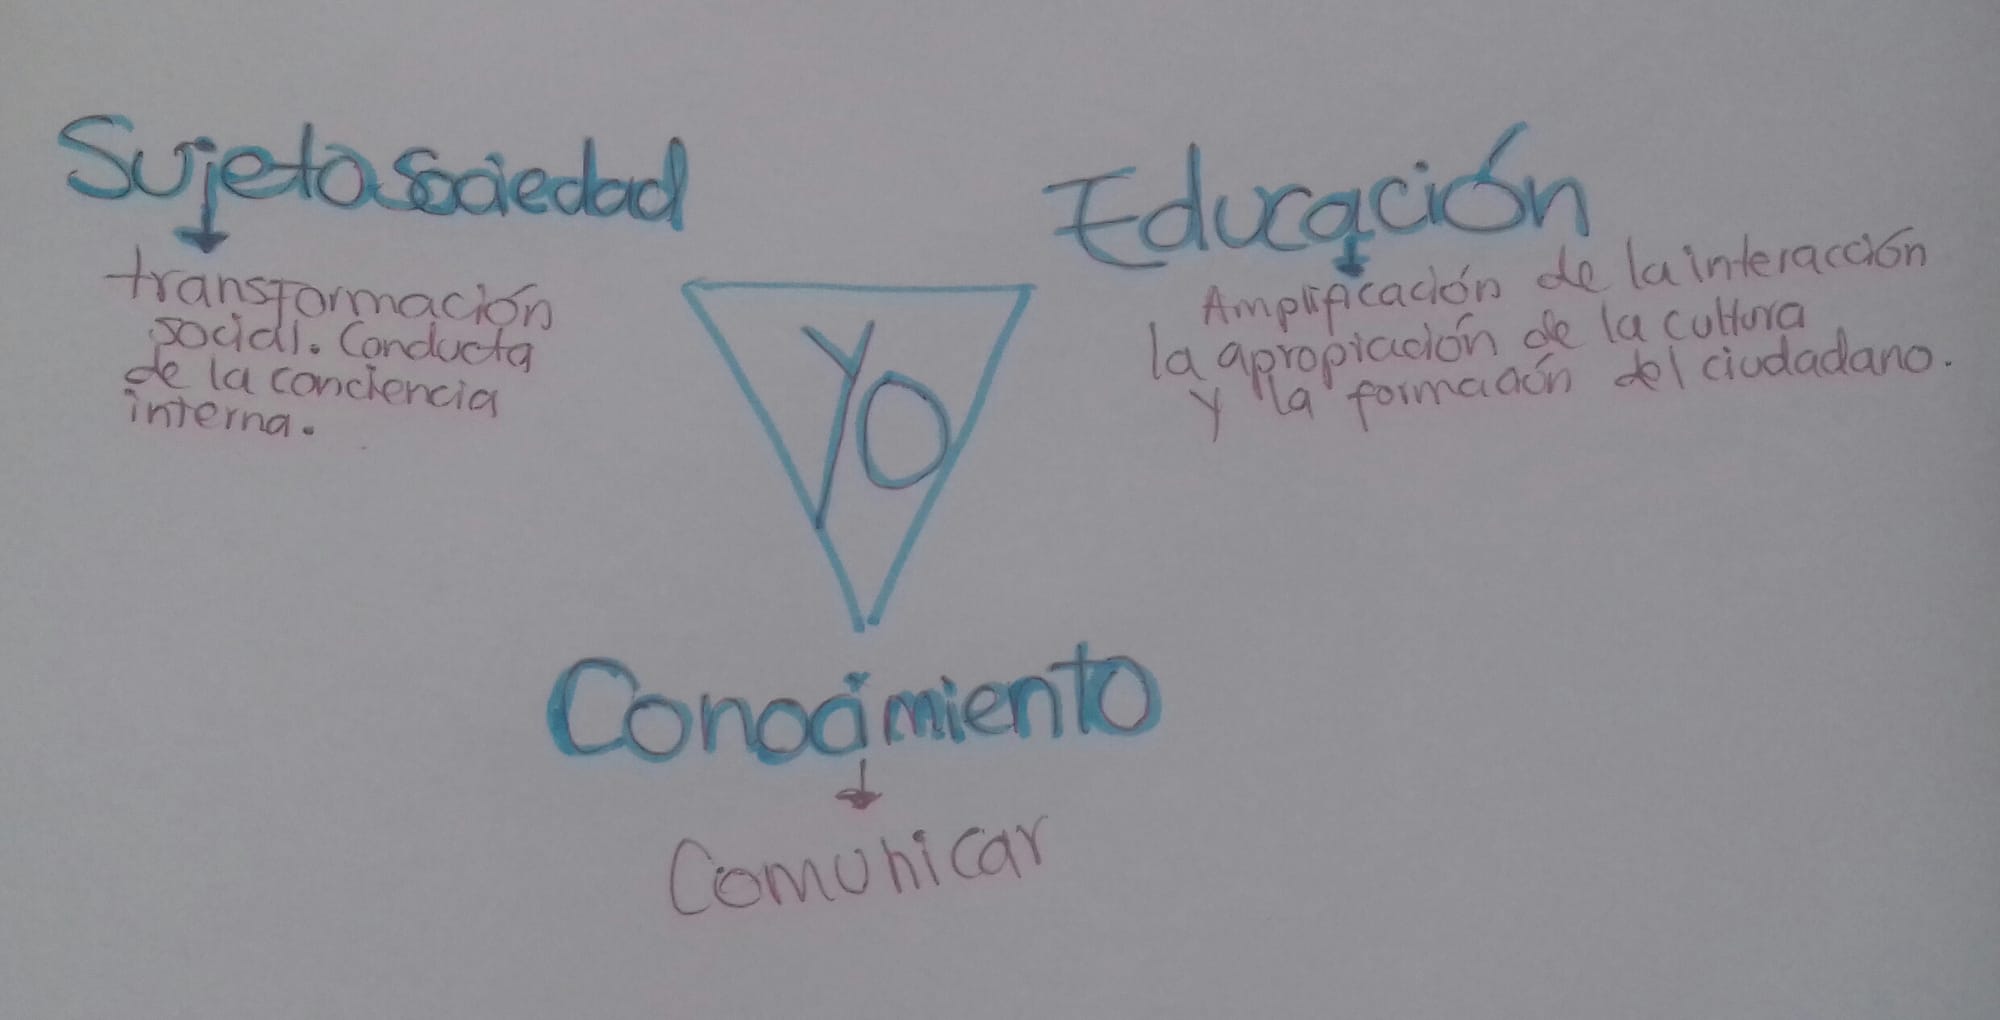 Sujeto Sociedad
transformación
social. Conducta
de la conciencia
interna.
Educación
Amplificación de la interacción
la apropiación de la cultura
y la formación del ciudadano.
YO
Conocimiento
Comunicar